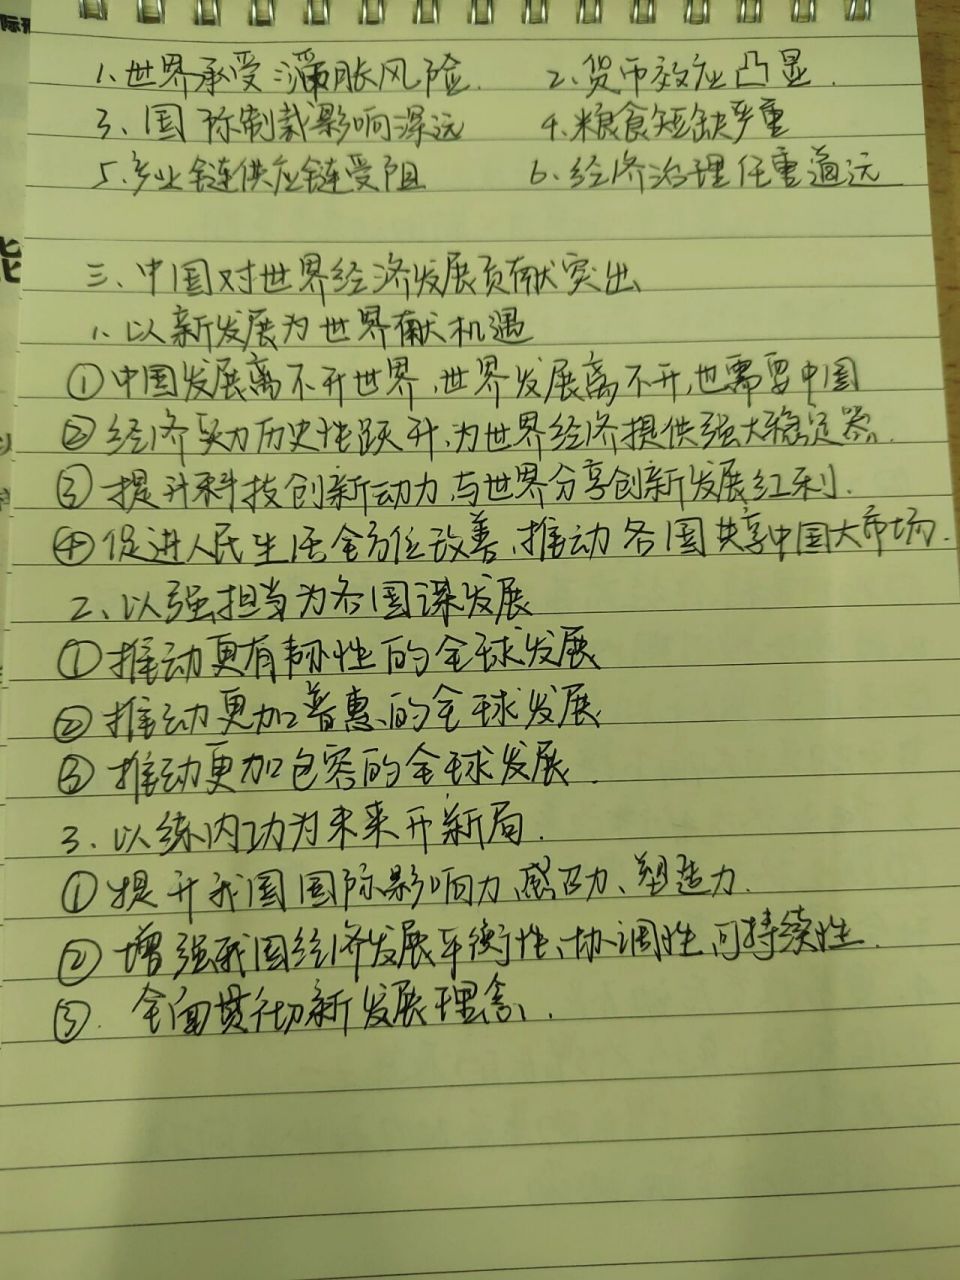 1、世界承受滞胀风险 2、货币效应凸显.
3、国际制裁影响深远 4、粮食短缺严重
5、产业链供应链受阻 6、经济治理任重道远
三、中国对世界经济发展贡献突出
1、以新发展为世界献机遇
①中国发展离不开世界,世界发展离不开,也需要中国
②经济实力历史性跃升,为世界经济提供强大稳定器.
③提升科技创新动力,与世界分享创新发展红利.
④促进人民生活全方位改善,推动各国共享中国大市场.
2、以强担当为各国谋发展
①推动更有韧性的全球发展
②推动更加普惠的全球发展
③推动更加包容的全球发展.
3、以练内功为未来开新局.
①提升我国国际影响力、感召力、塑造力.
②增强我国经济发展平衡性、协调性、可持续性.
③.全面贯彻新发展理念.
能